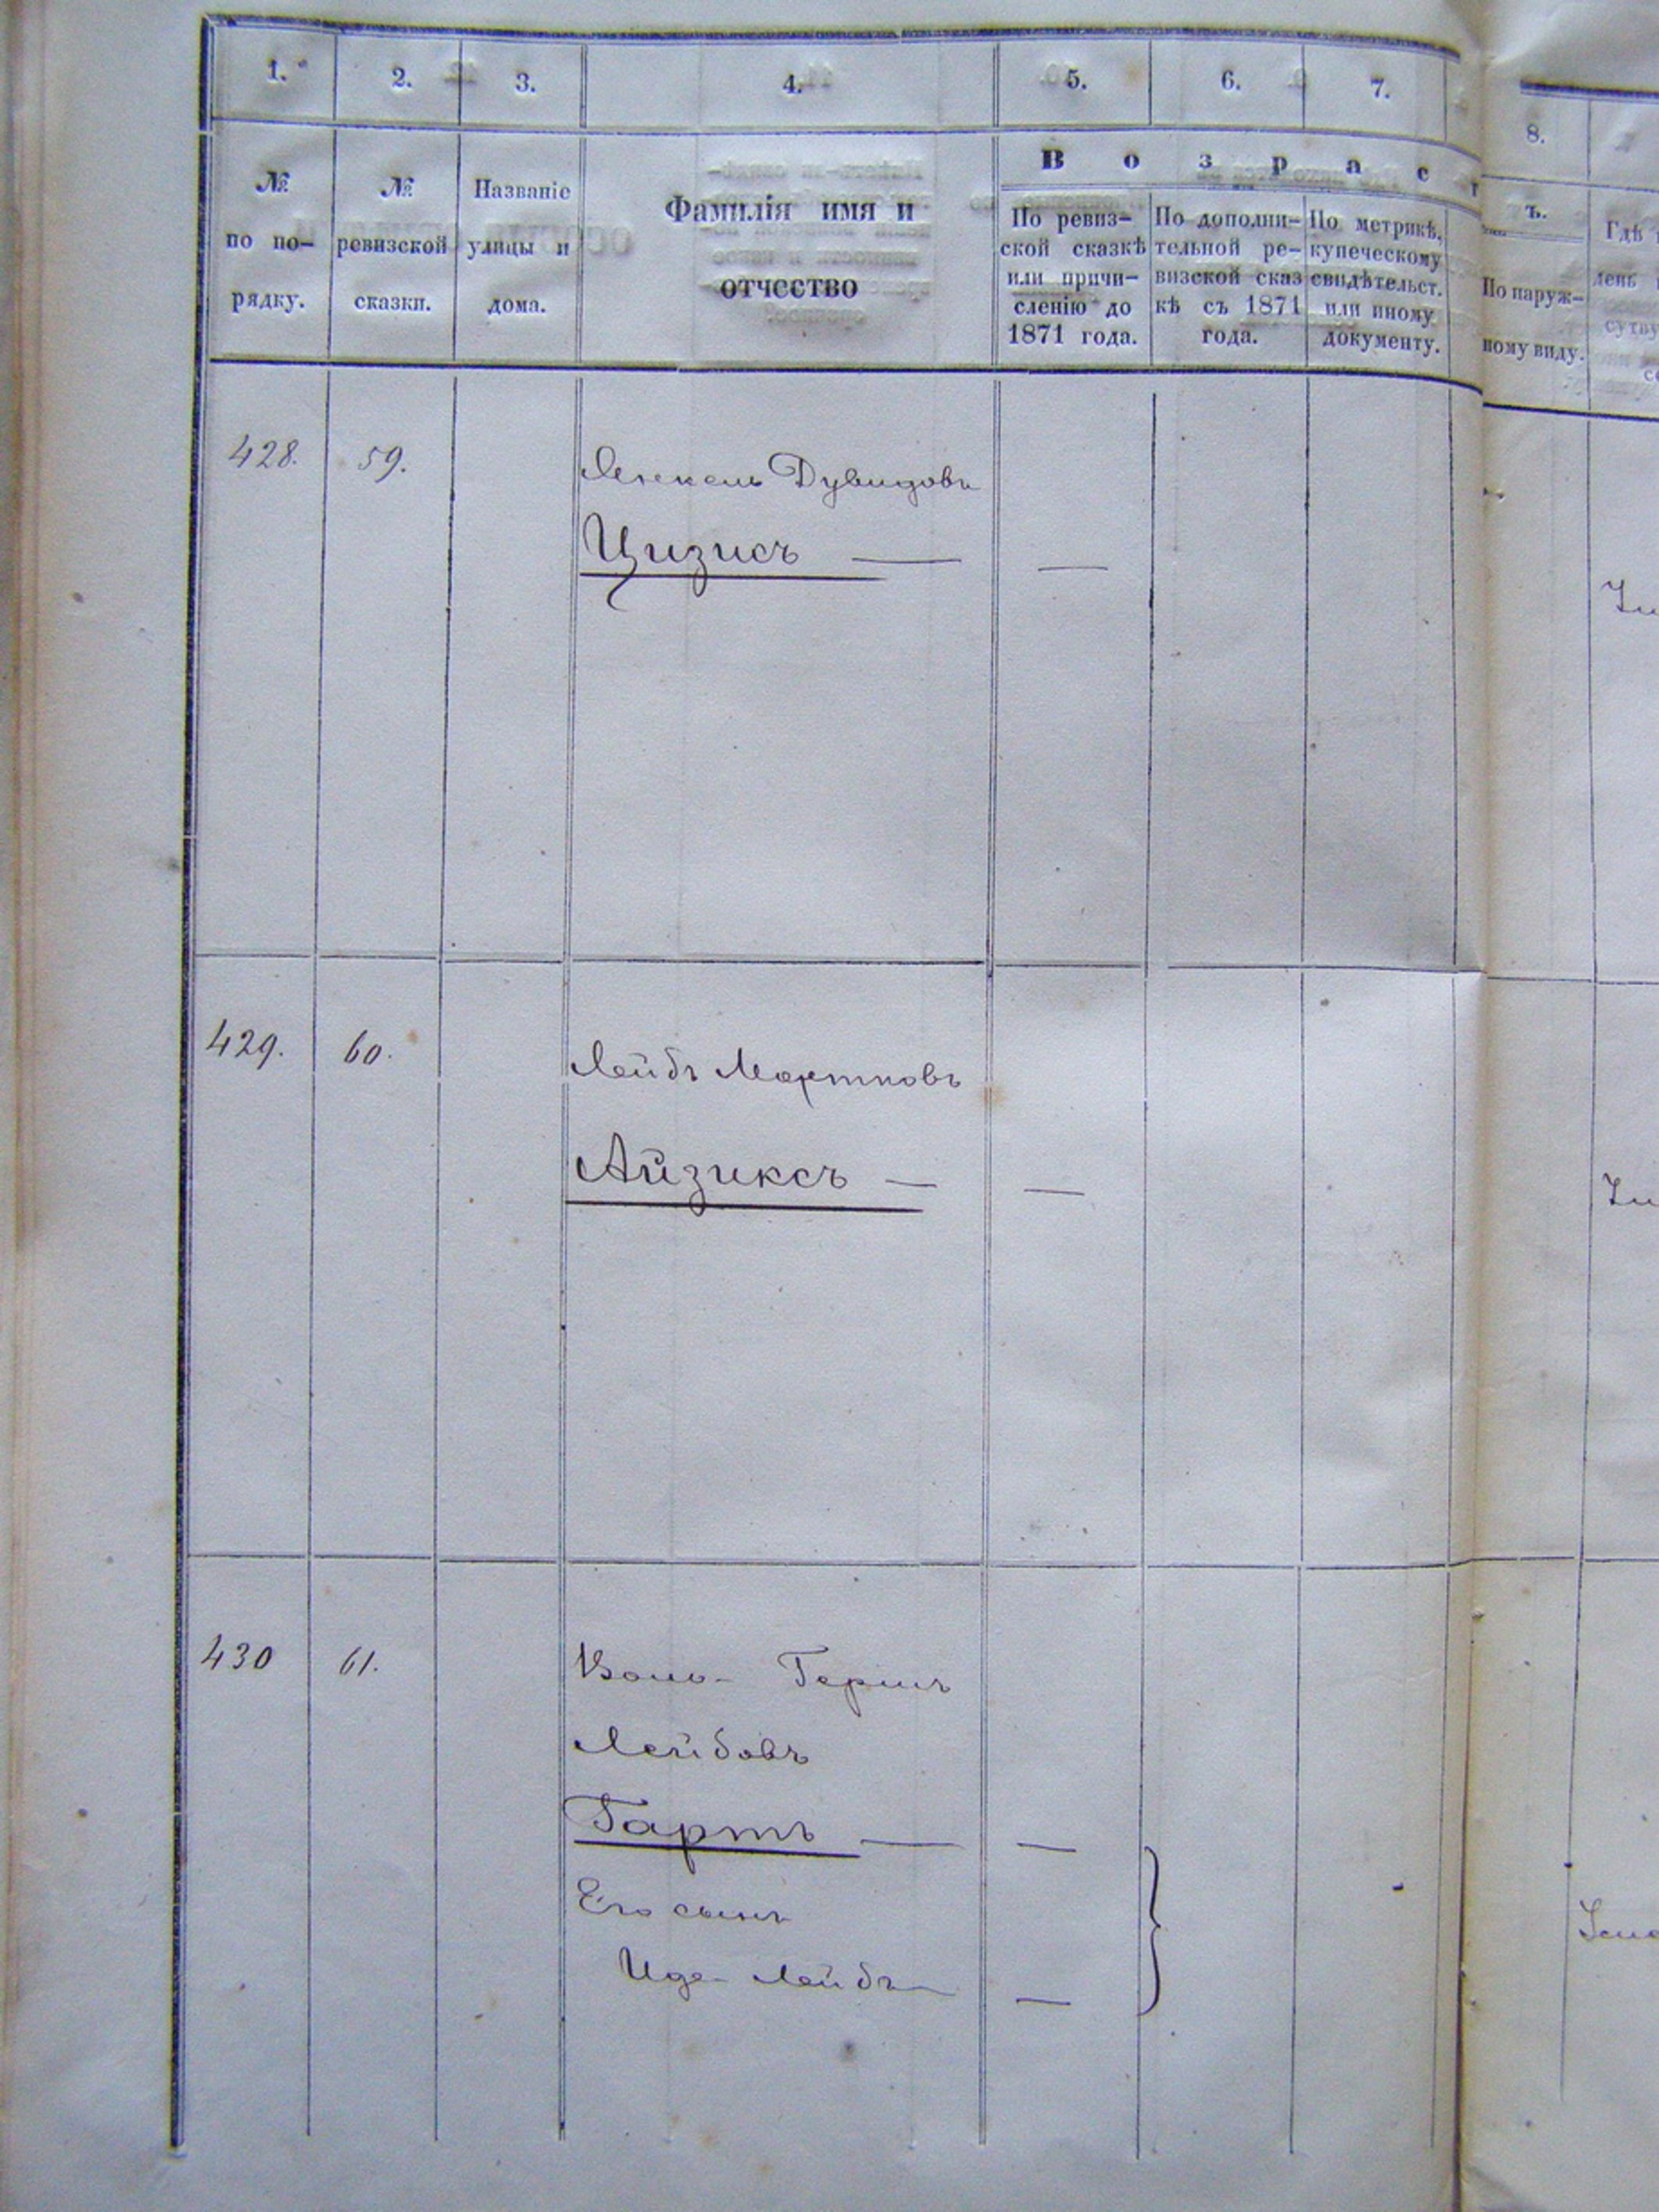 1. 2. 3. 4. 5. 6. 7. 8.
№ по по-рядку.
№ ревизской сказки.
Названіе улицы и дома.
Фамилія имя и
отчество
В о з р а с т
ъ.
По ревиз-
ской сказкѣ
или причи-
сленію до
1871 года.
По дополни-
тельной ре-
визской сказ
кѣ съ 1871
года.
По метрикѣ,
купеческому
свидѣтельст.
или иному
документу.
По наруж-
ному виду.
Гдѣ
428. 59. Дувидовъ
Цизисъ — —
429. 60. Лейбъ Мортковъ
Айзиксъ — —
430 61. Гершъ
Лейбовъ
Гартъ — —
Его сынъ
Иде- Лейбъ —